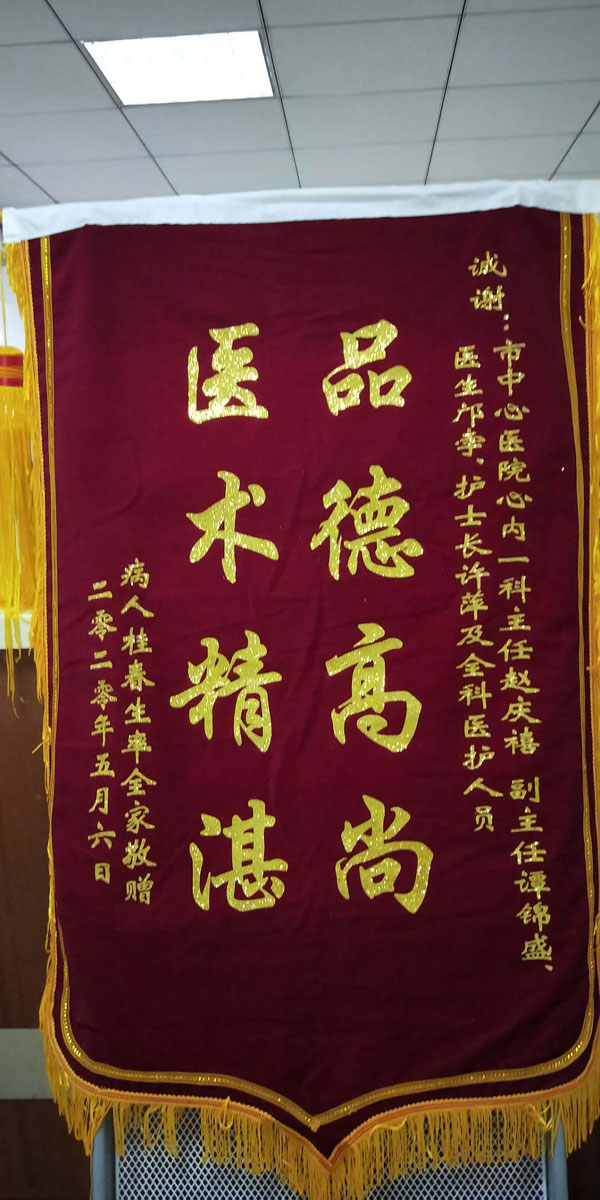 诚谢：市中心医院心内一科主任赵庆禧 副主任谭锦盛、
医生邝李、护士长许萍及全科医护人员
品德高尚
医术精湛
病人桂春生率全家敬赠
二零二零年五月六日